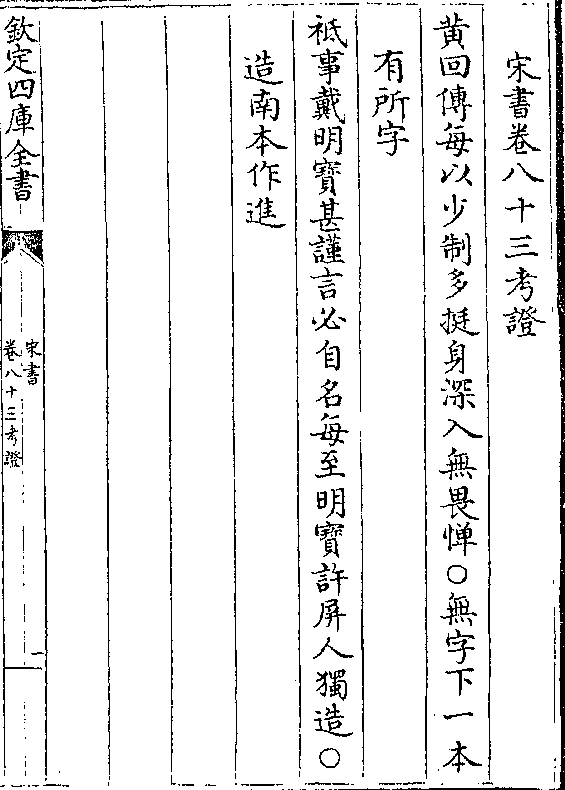 宋書卷八十三考證
黄回傳每以少制多挺身深入無畏憚○無字下一本
有所字
祗事戴明寶甚謹言必自名每至明寶許屏人獨造○
造南本作進
欽定四庫全書
宋書
卷八十三考證
一